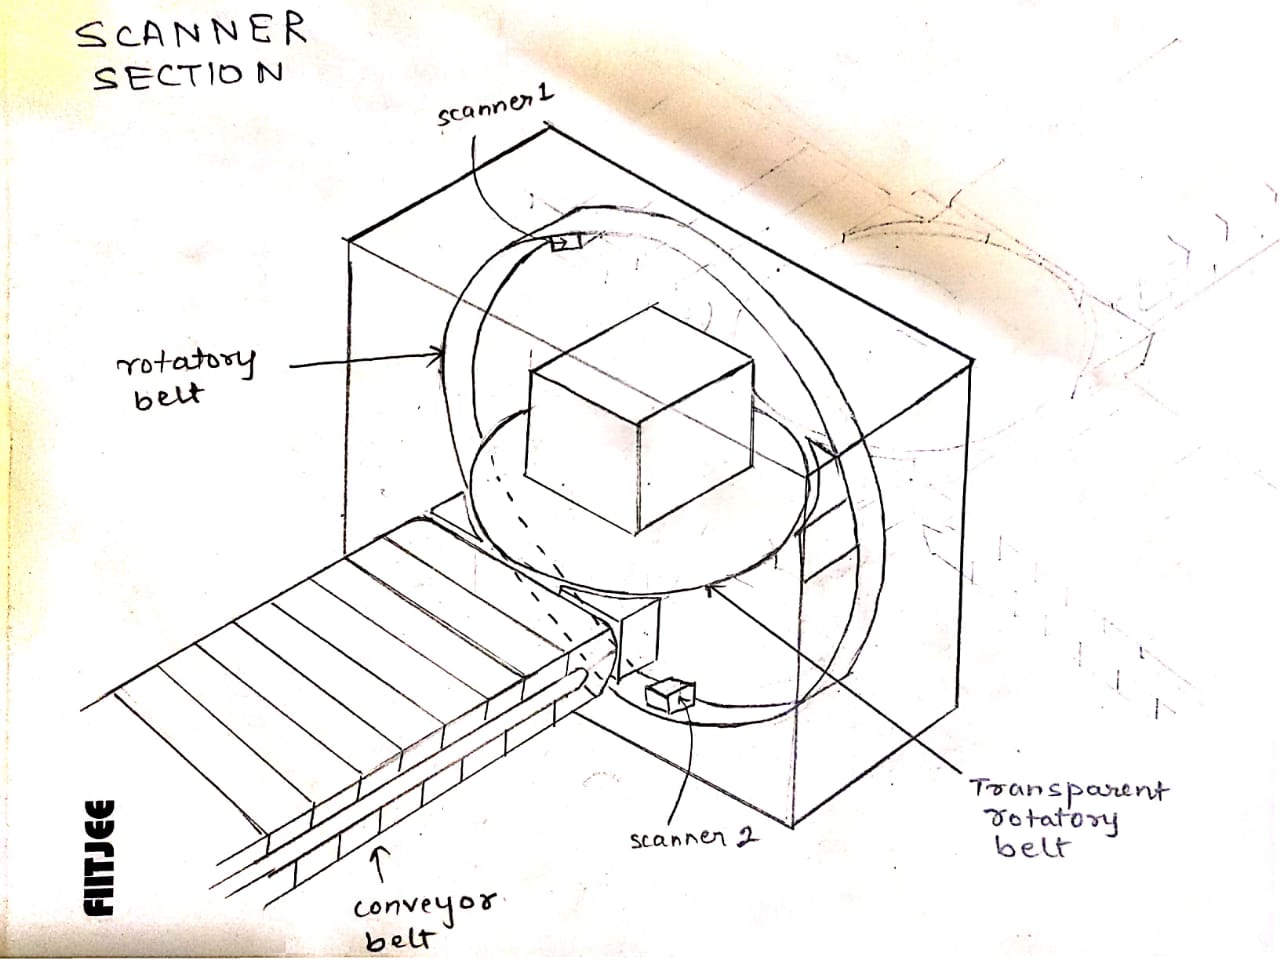 SCANNER
SECTION
scanner1
rotatory
belt
Transparent
rotatory
belt
scanner 2
conveyor
belt
FIITJEE